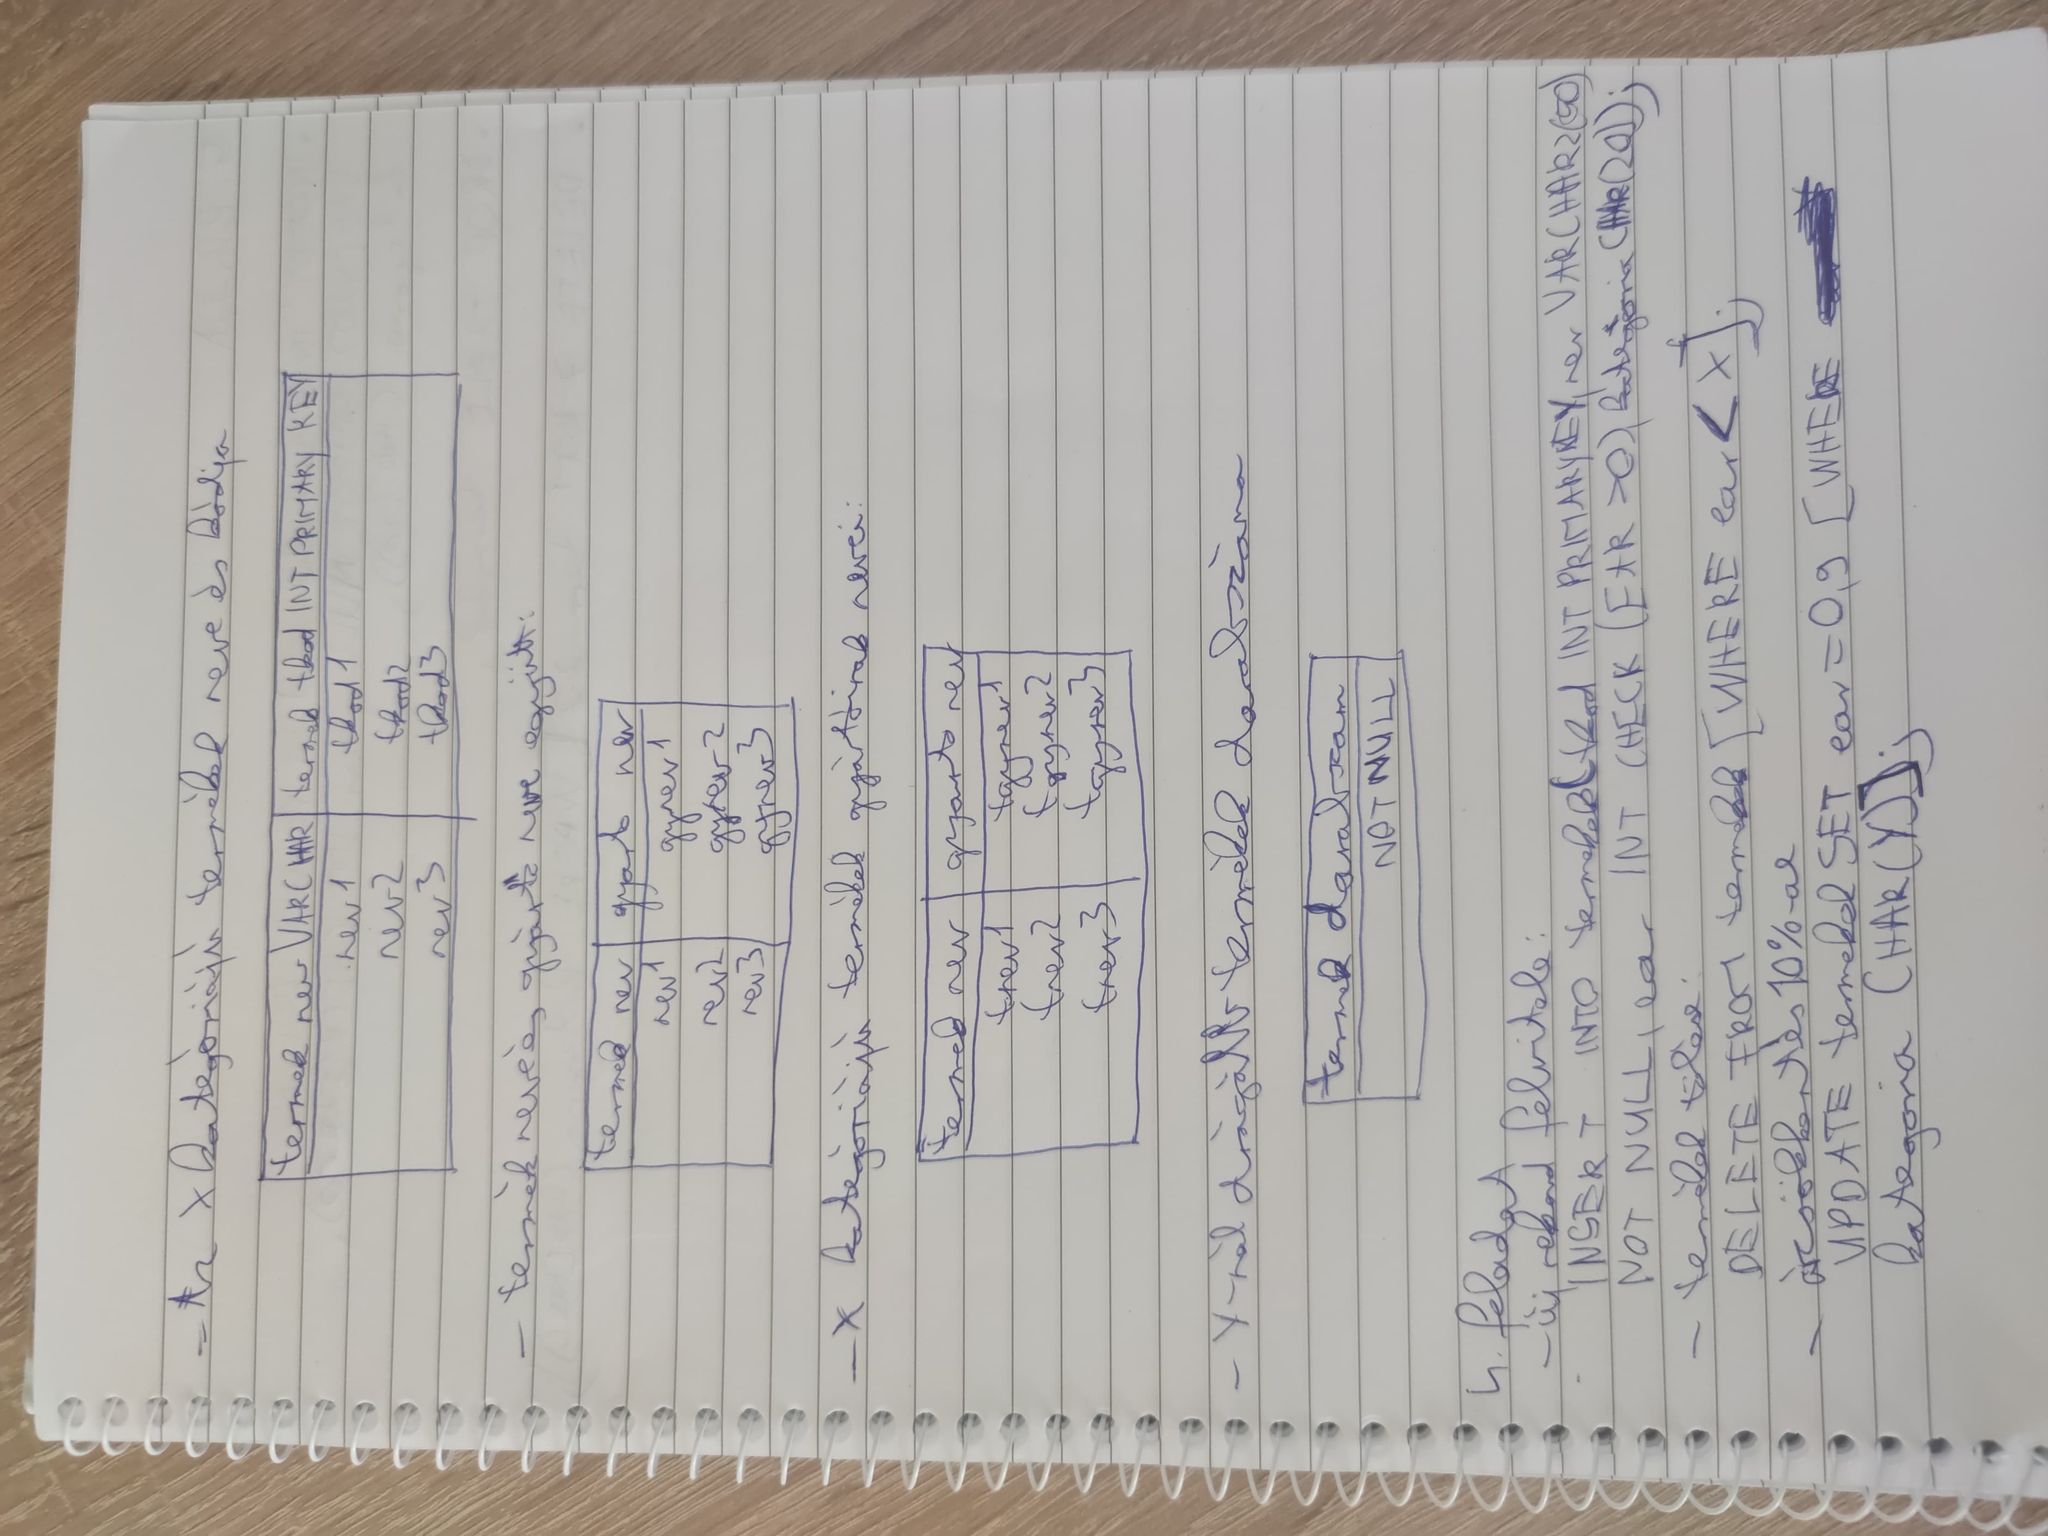 - Az X kategóriájú termékek neve és kódja
termek nev VARCHAR termek tkod INT PRIMARY KEY
nev1 tkod1
nev2 tkod2
nev3 tkod3
- termék neve, gyártó neve együtt:
termek nev gyarto nev
nev1 gynev1
nev2 gynev2
nev3 gynev3
- X kategóriájú termékek gyártóinak nevei:
termek nev gyarto nev
tnev1 tgynev1
tnev2 tgynev2
tnev3 tgynev3
- Y-nál drágább termékek darabszáma
termek darabszam
NOT NULL
4. feladat
- új rekord felvitele:
INSERT INTO termekek(tkod INT PRIMARY KEY, nev VARCHAR2(50)
NOT NULL, ear INT CHECK (EAR >0), kategoria CHAR(20));
- termékek törlése:
DELETE FROM termekek [WHERE ear < X];
- árcsökkentés 10%-al
UPDATE termekek SET ear = 0,9 [WHERE
kategoria CHAR(Y)];